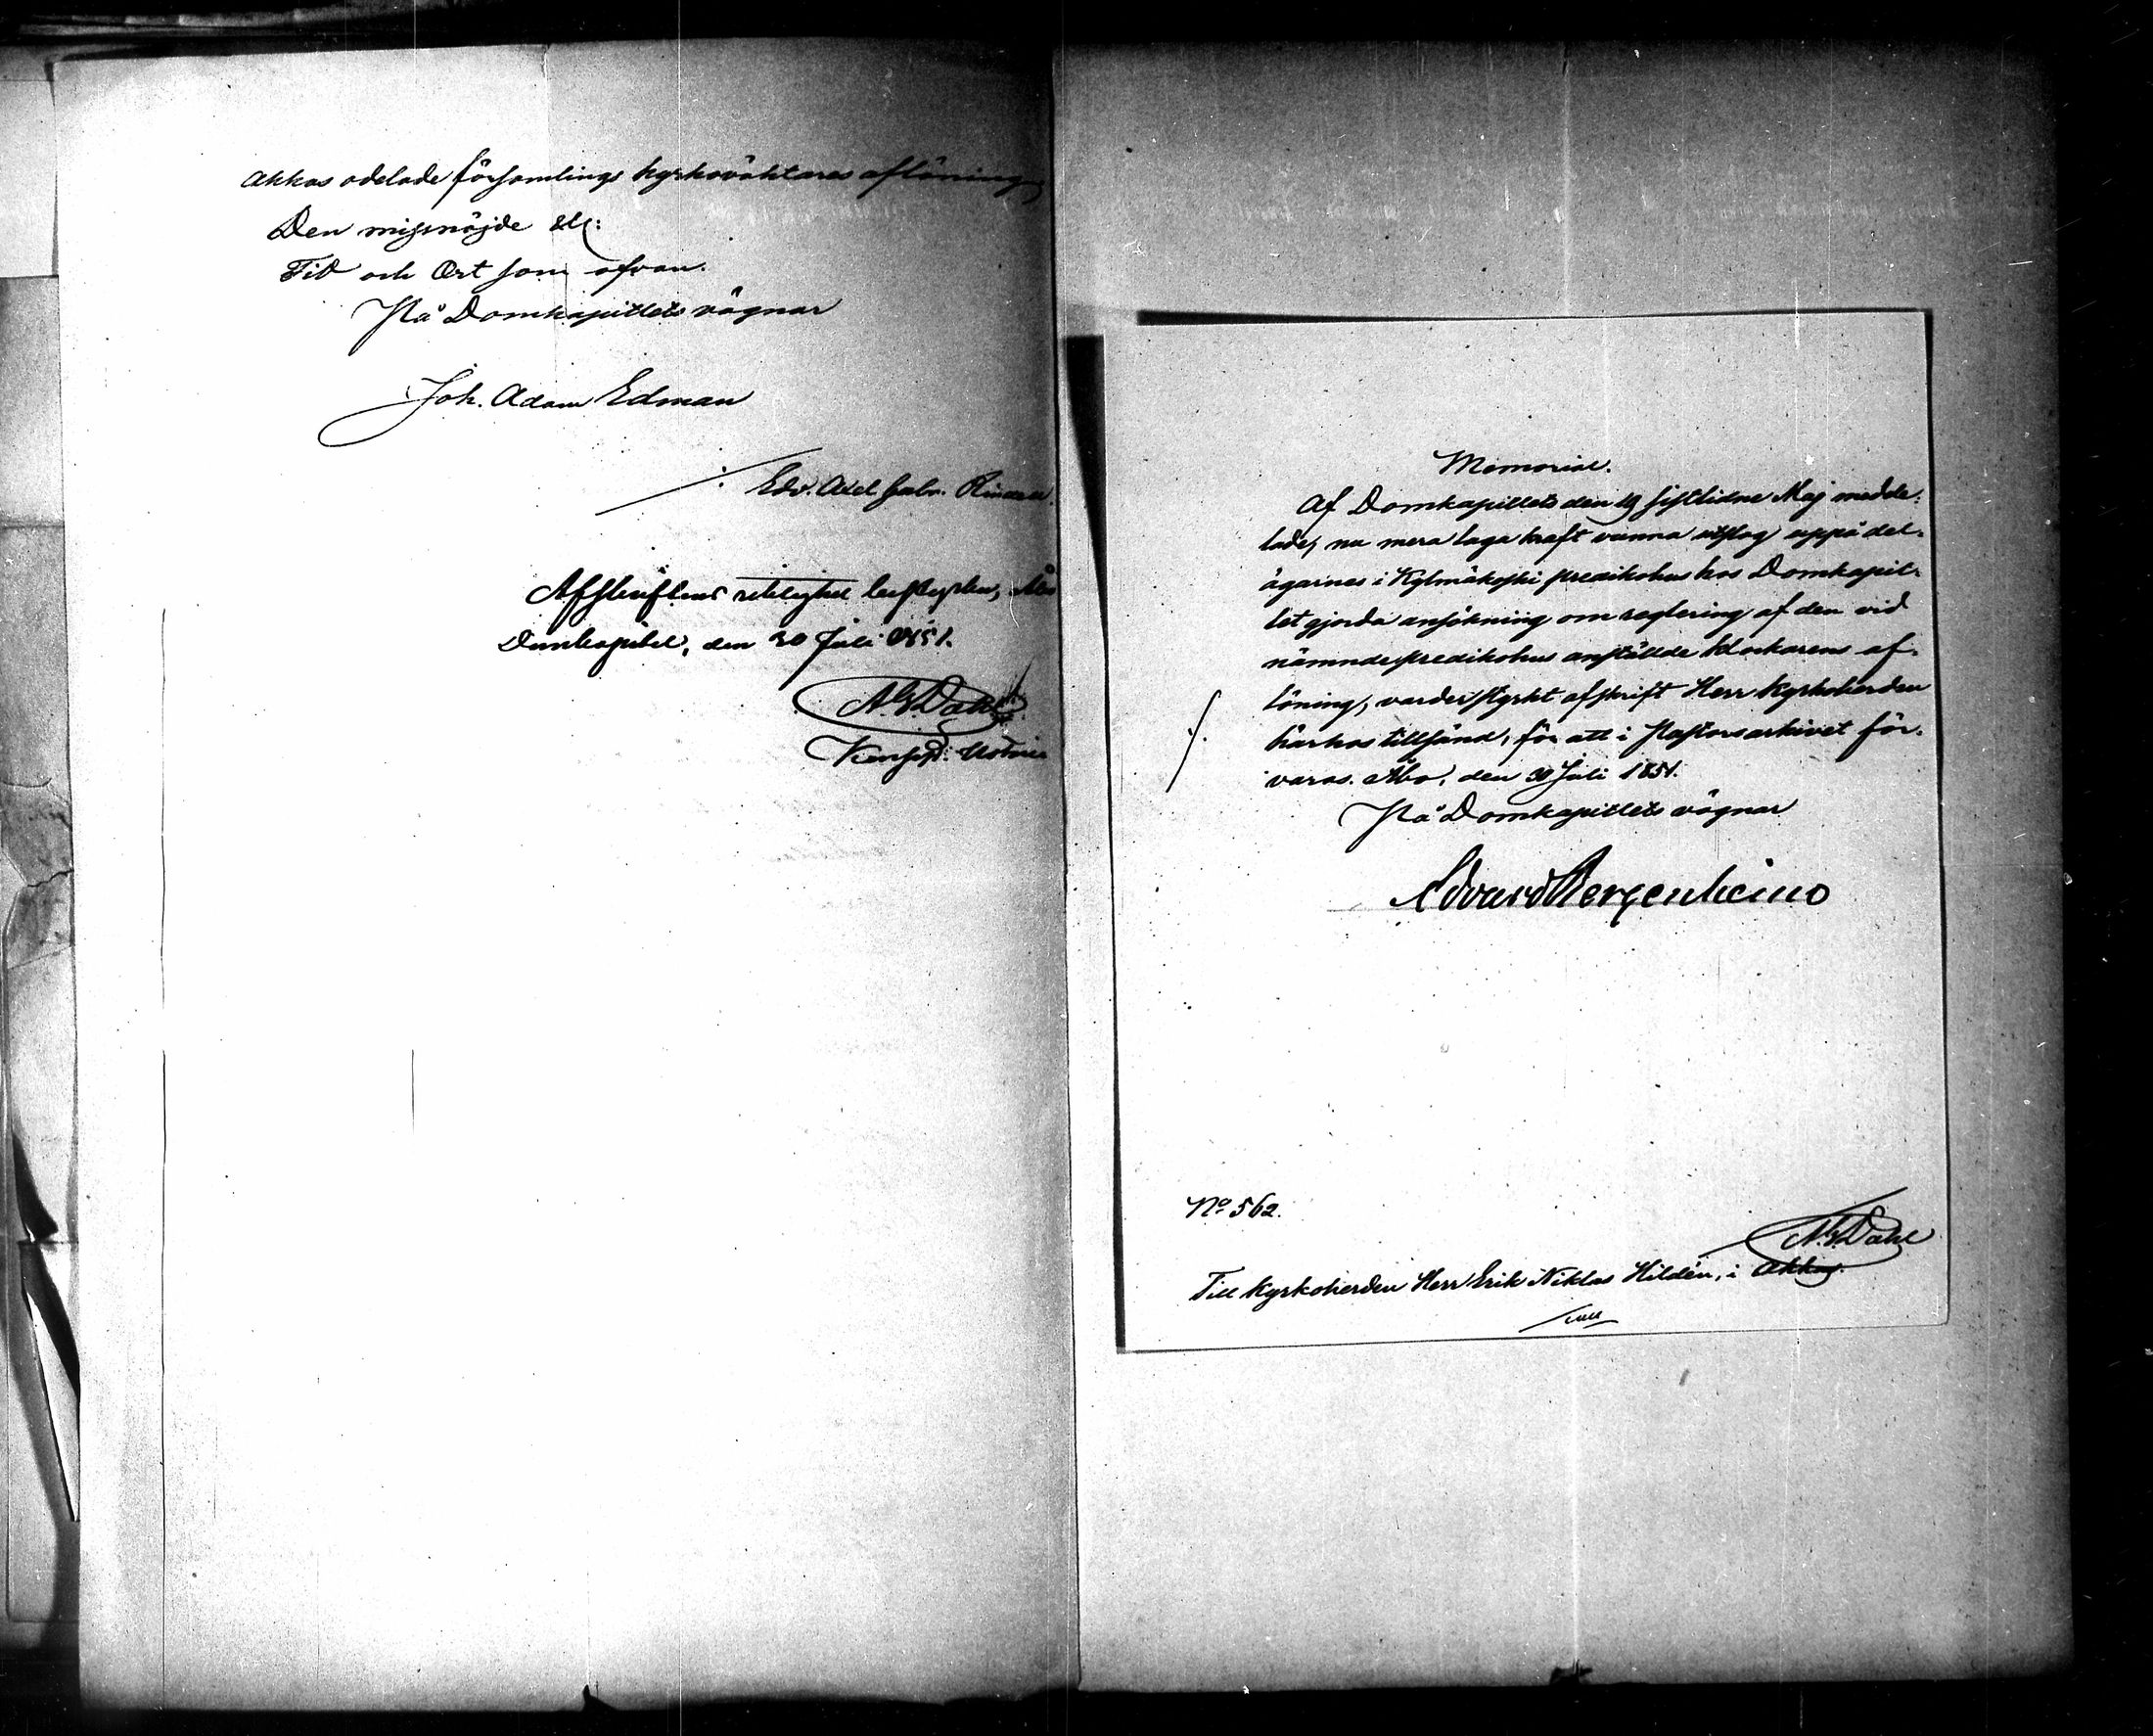 Akkas odelade församlings kyrkovaktares aflöning,
Den missnöjde &c:
Tid och Ort som ofvan.
På Domkapitlets vägnar
Joh. Adam Edman
/: Edv. Axel Gabr.
Afskriftens riktighet besty​rker, Åbo
Domkapitel, den 30 Juli 1851.
A. G. Dahl
Consist. Notarie
Memorial.
Af Domkapitlets den 19 sistlidne Maj medde-
lade, nu mera laga kraft vunna utslag uppå del-
ägarnes i Kylmäkoski predikohus hos Domkapit-
let gjorda ansökning om reglering af den vid
nämnde predikohus anställde klockarens af-
löning, varder styrkt afskrift Herr Kyrkoherden
härhos tillsänd, för att i Pastorsarkivet för-
varas. Åbo, den 30 Juli 1851.
På Domkapitlets vägnar
Edvard Bergenheim
No 562.
A. G. Dahl
Till Kyrkoherden Herr Erik Niklas Hildén, i Akkas.